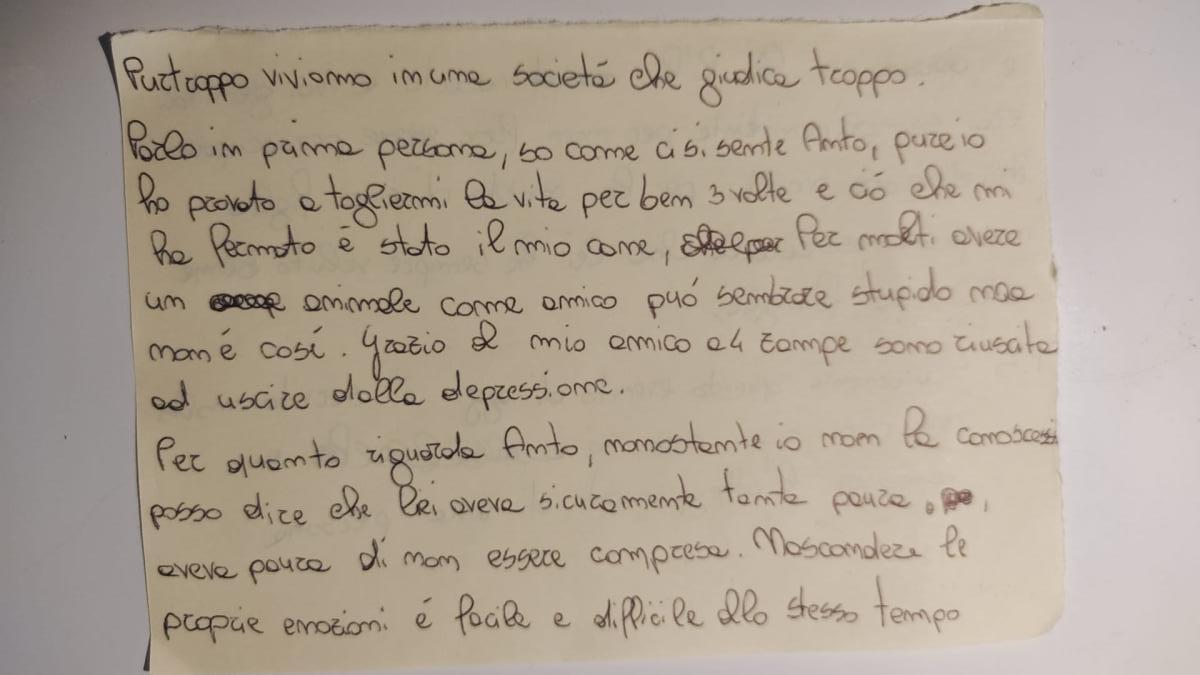 Purtroppo viviamo in una società che giudica troppo.
Parlo in prima persona, so come ci si sente Anto, pure io
ho provato a togliermi la vita per ben 3 volte e ció che mi
ha fermato è stato il mio cane, Per molti avere
un animale come amico puó sembrare stupido ma
non é cosí. Grazio al mio amico a 4 zampe sono riuscita
ad uscire dalla depressione.
Per quanto riguarda Anto, nonostante io non la conoscessi
posso dire che lei aveva sicuramente tanta paura,
aveva paura di non essere compresa. Nascondere le
proprie emozioni é facile e difficile allo stesso tempo